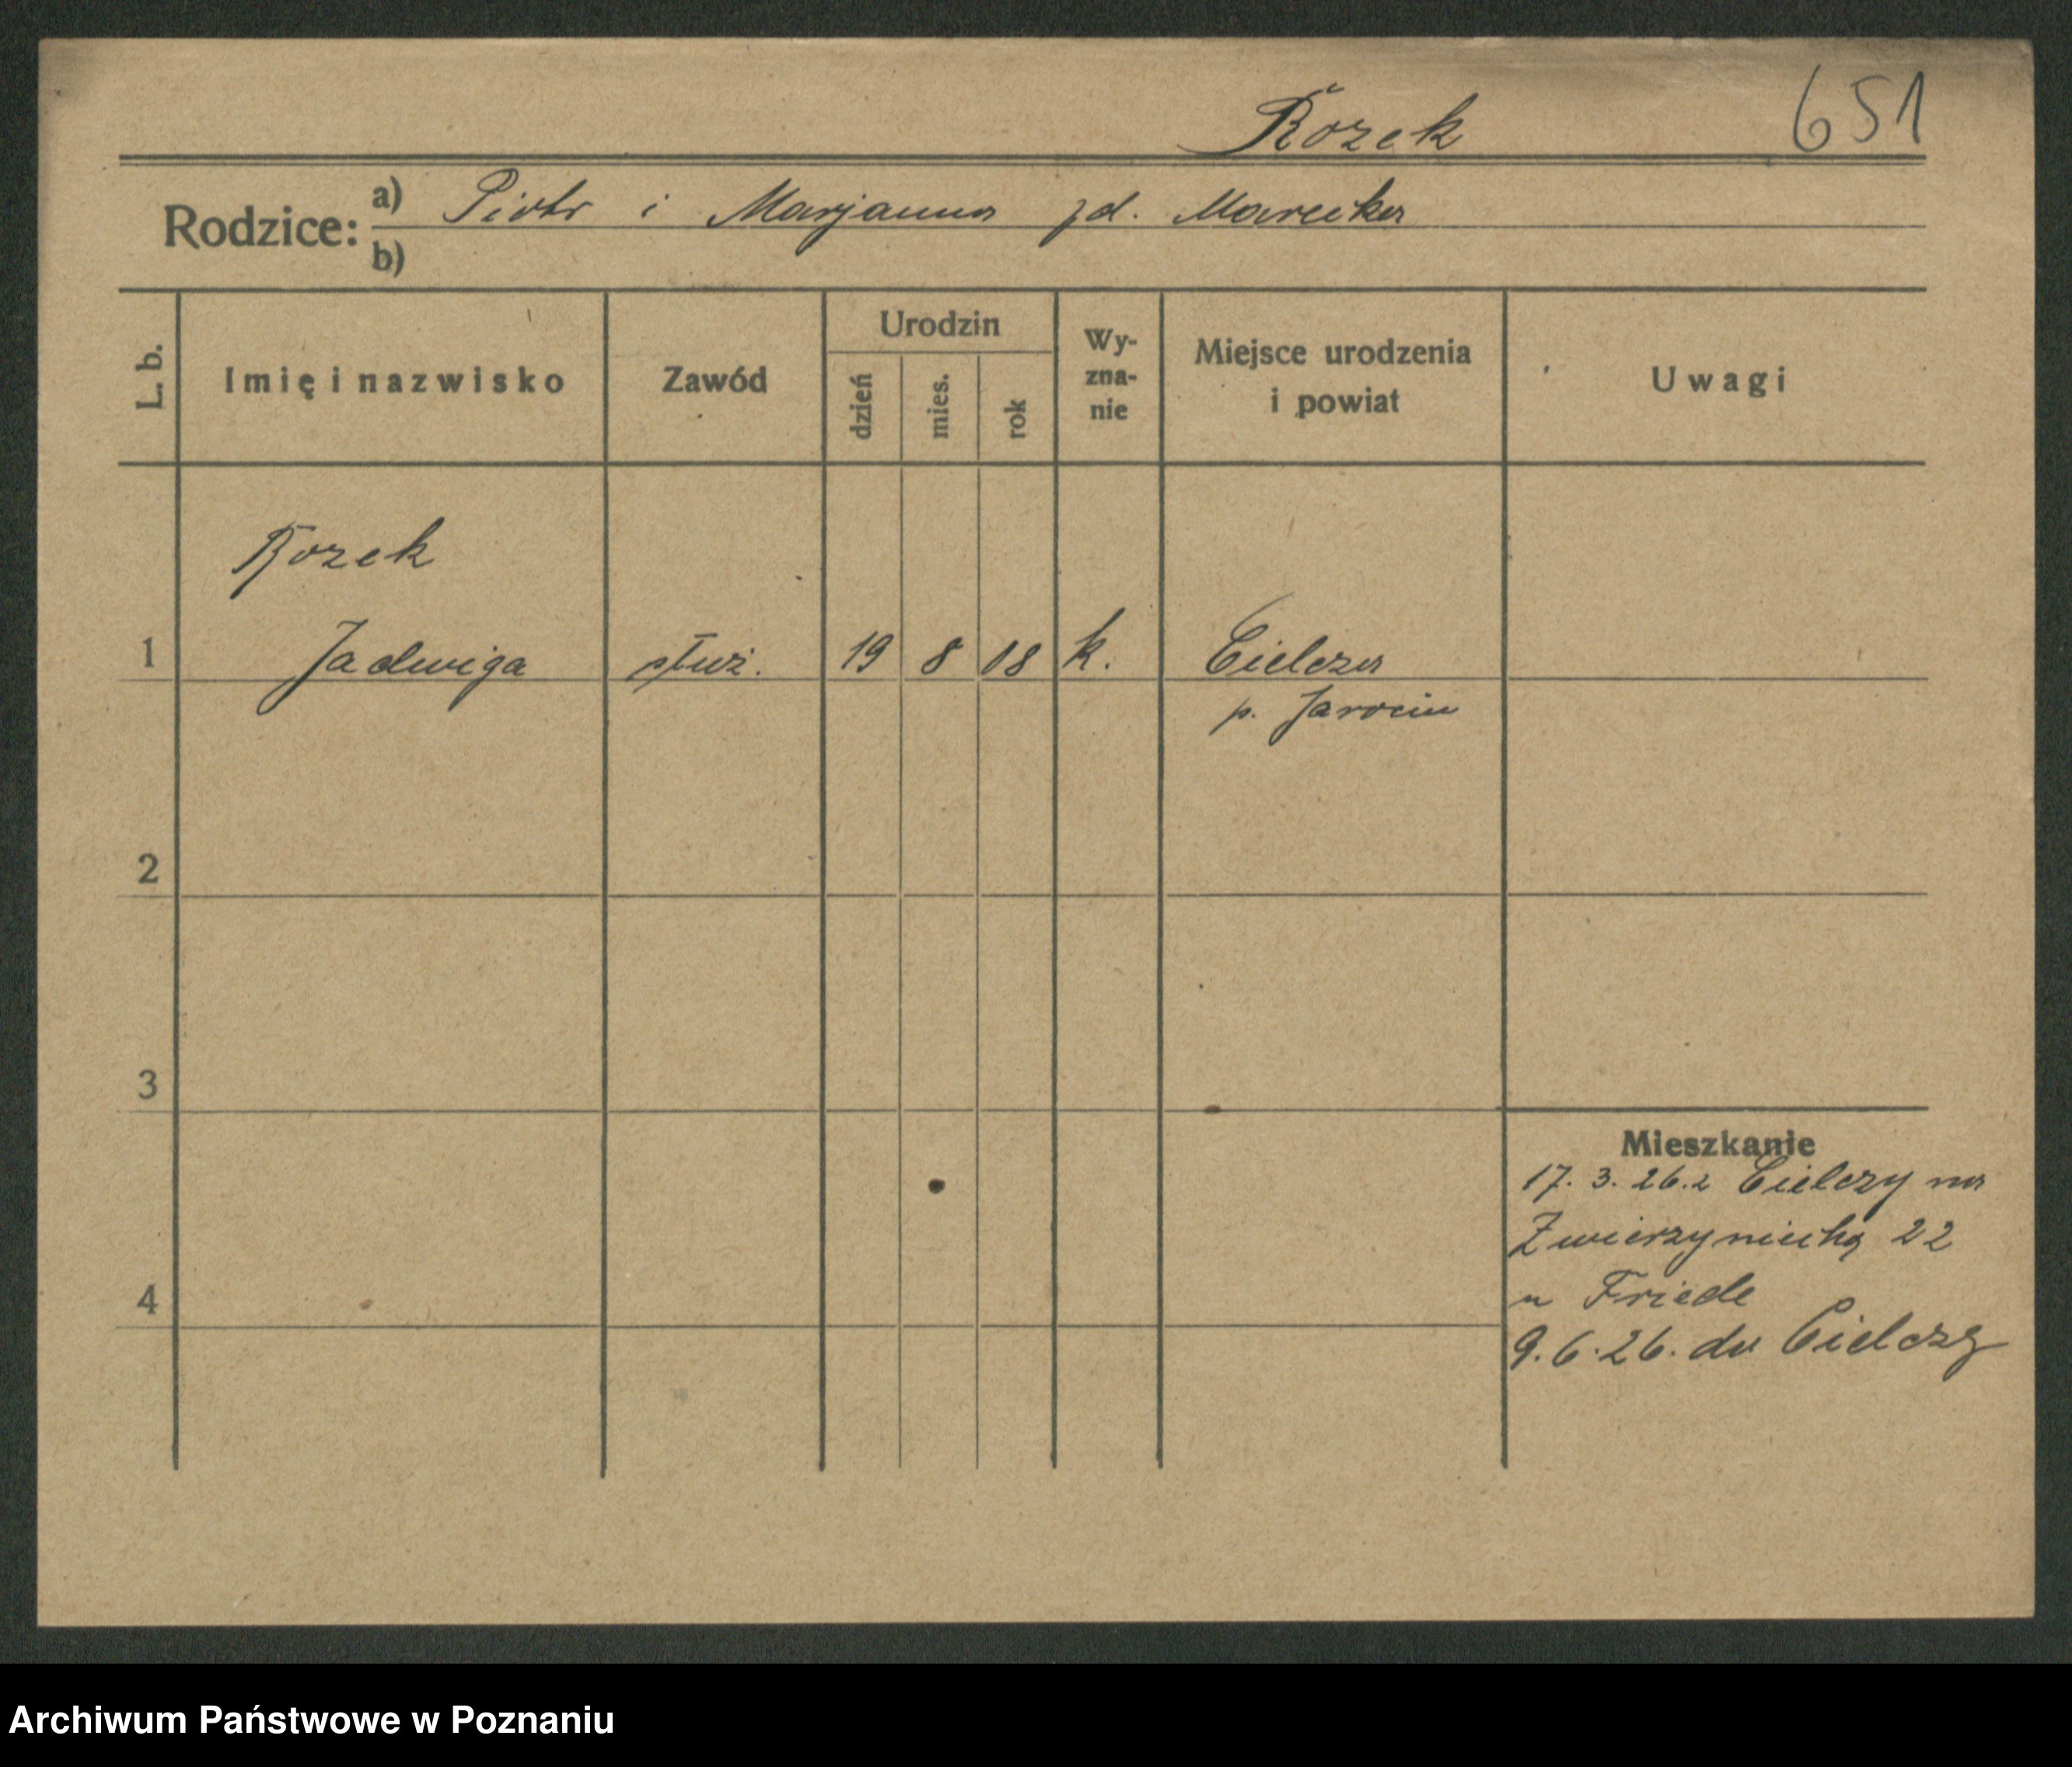 Rozek 651
Rodzice: a) Piotr i Marjanna zd. Marecka
b)
L. b. Imię i nazwisko Zawód Urodzin dzień mies. rok Wy-zna-nie Miejsce urodzenia i powiat Uwagi
Rozek
1 Jadwiga służ. 19 8 08 k. Cielcza
p. Jarocin
2
3
Mieszkanie
17. 3. 26. z Cielczy na
Zwierzyniecką 22
u Friede
4
9. 6. 26. do Cielczy
Archiwum Państwowe w Poznaniu